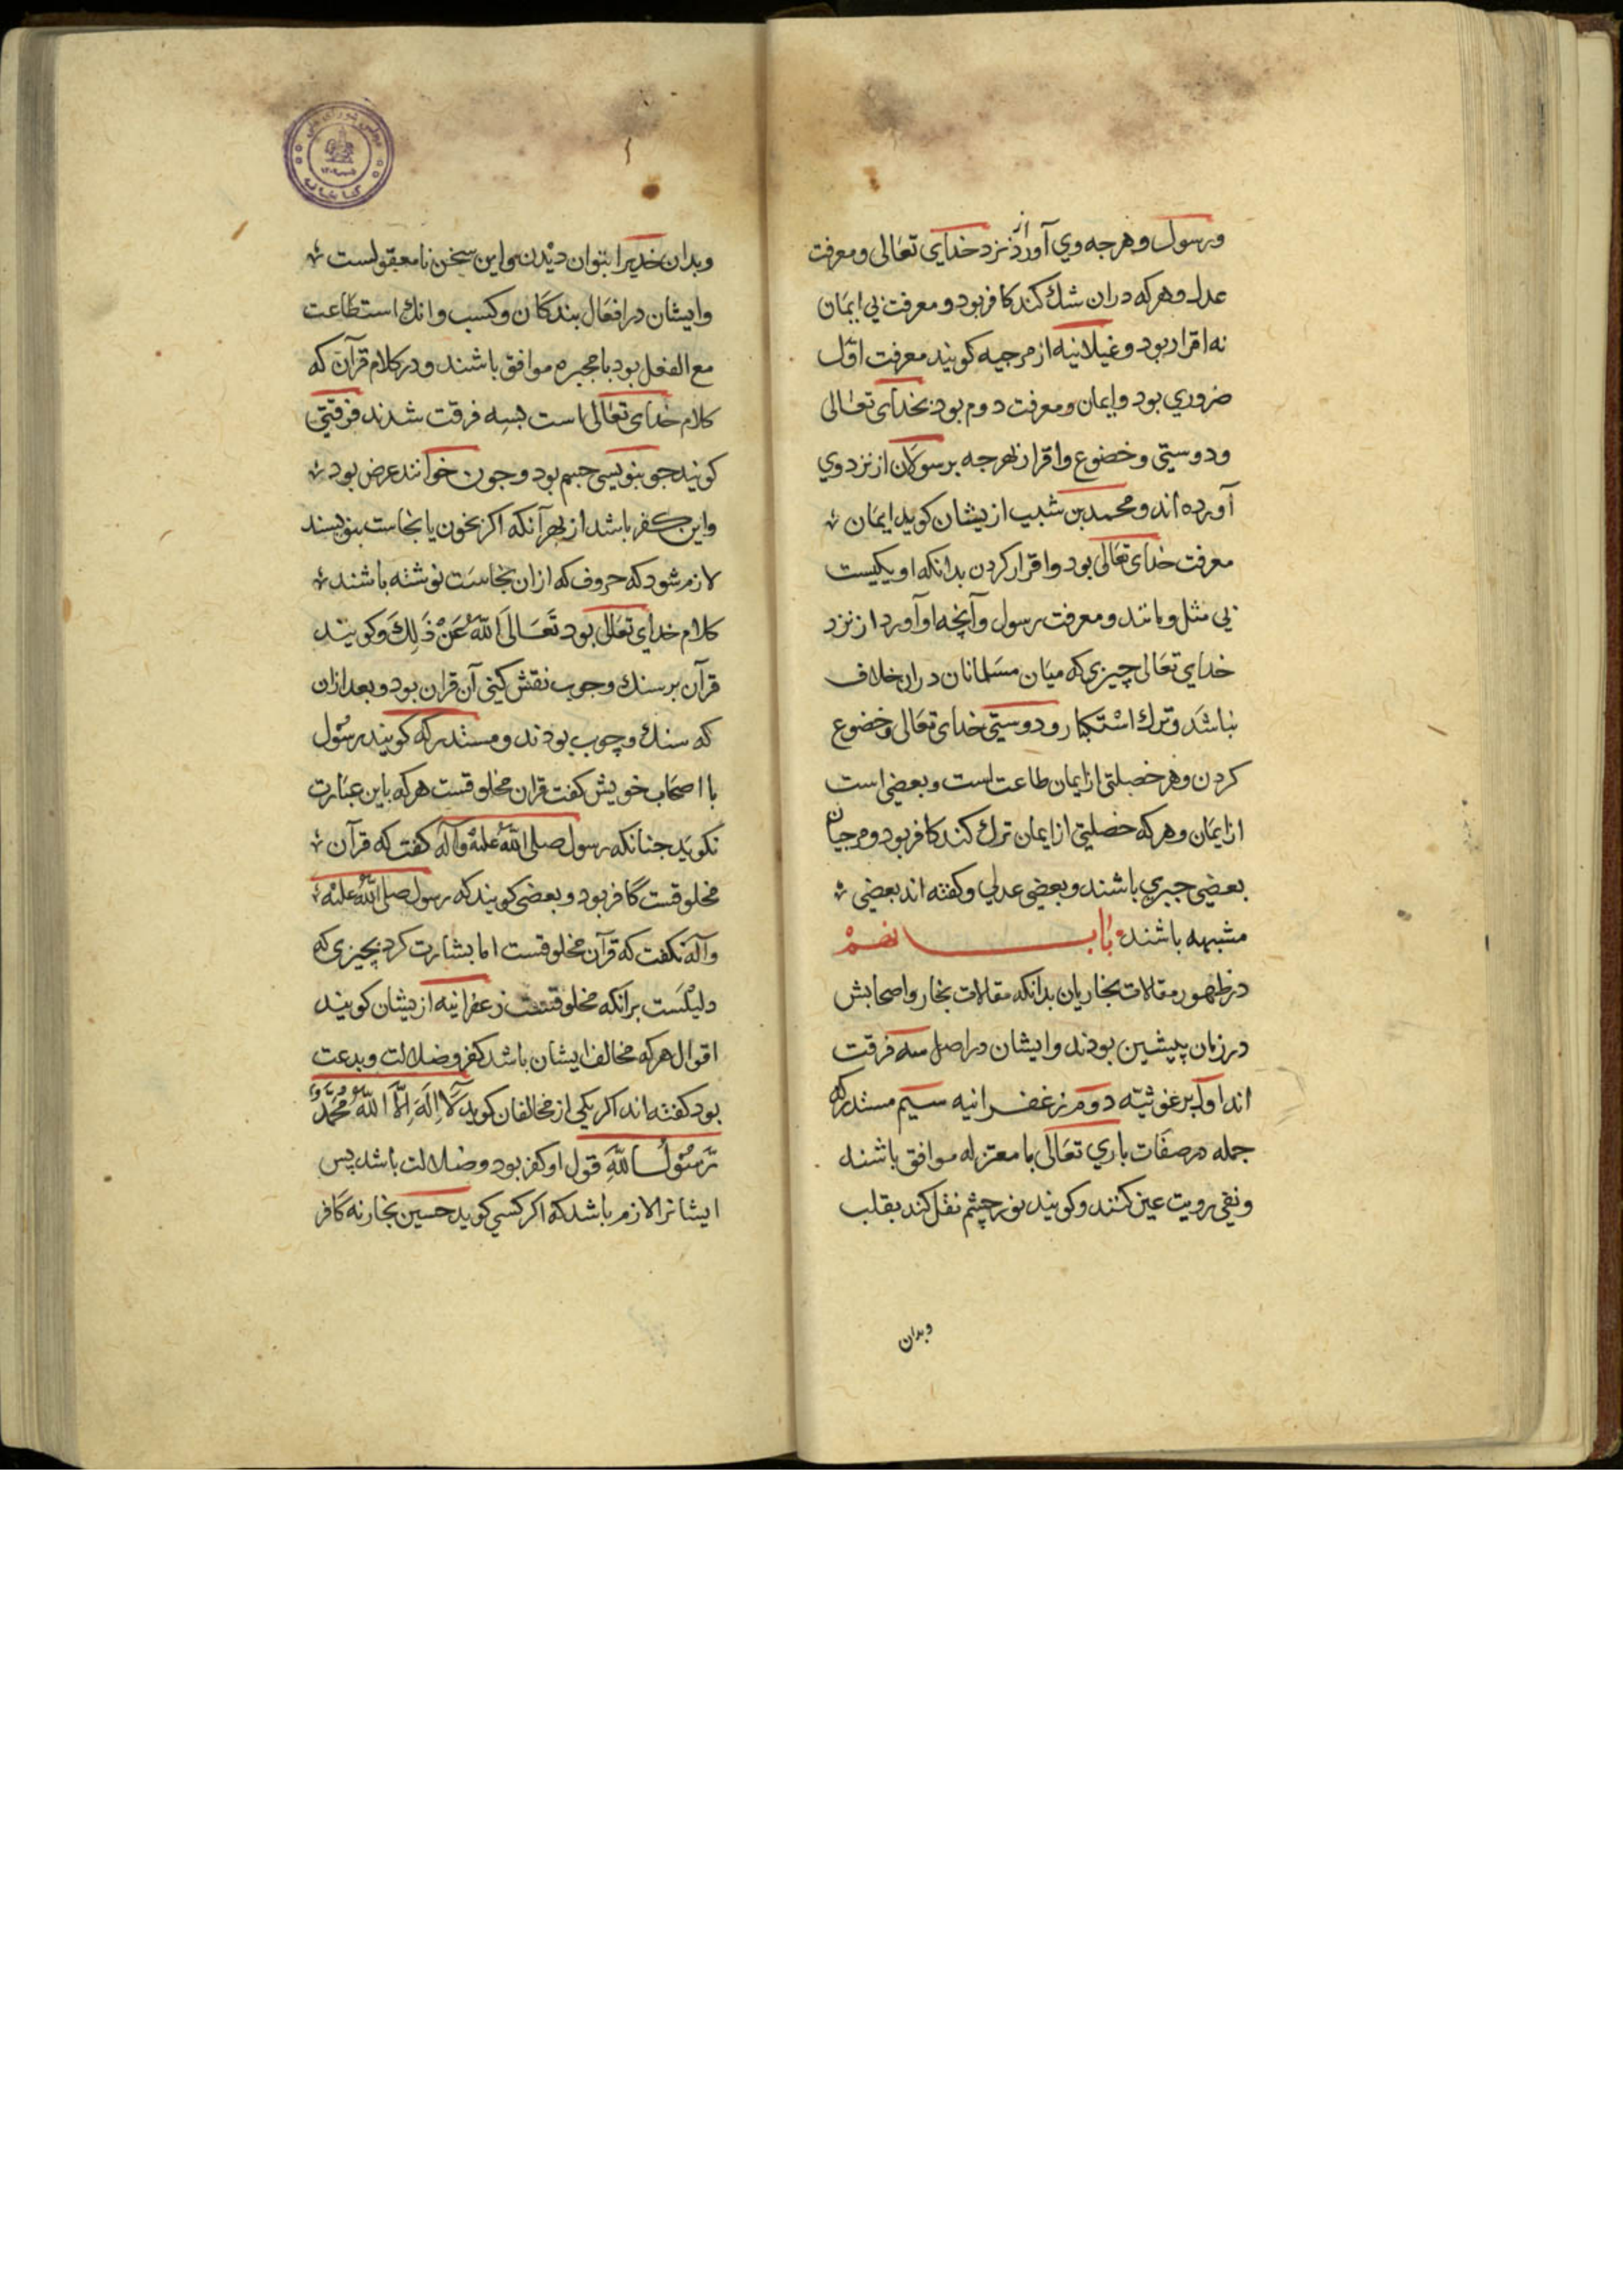 ورسول وهرچه وي آورد از نزد خداي تعالى ومعرفت
عدل وهركه دران شك كند كافر بود ومعرفت بي ايمان
نه اقرار بود وغيلانيه از مرجيه كويند معرفت اول
ضروري بود وايمان ومعرفت دوم بود بخداى تعالى
ودوستي وخضوع واقرار بهرجه برسولان از نزد وي
آورده اند ومحمد بن شبيب ازيشان كويد ايمان
معرفت خداى تعالى بود واقرار كردن بدانكه او يكيست
بي مثل ومانند ومعرفت رسول وآنچه او آورد از نزد
خداي تعالى چيزي كه ميان مسلمانان دران خلاف
نباشد وترك استكبار ودوستي خداى تعالى وخضوع
كردن وهر خصلتى از ايمان طاعت است وبعضي است
از ايمان وهركه خصلتي از ايمان ترك كند كافر بود ومرجيان
بعضي جبري باشند وبعضي عدلي وكفته اند بعضي
مشبهه باشند باب نهم
در ظهور مقالات نجاريان بدانكه مقالات نجار واصحابش
در زمان پيشين بودند وايشان در اصل سه فرقت
اند اول برغوثيه دوم زعفرانيه سيم مستدركه
جمله در صفات باري تعالى با معتزله موافق باشند
ونفي رويت عين كنند وكويند نور چشم نقل كند بقلب
وبدان
وبدان خديرا بتوان ديدن واين سخن نامعقولست
وايشان در افعال بندكان وكسب وانك استطاعت
مع الفعل بود با مجبره موافق باشند ودر كلام قرآن كه
كلام خداى تعالى است بسه فرقت شدند فرقتي
كويند جو بنويسي جسم بود وجون خوانند عرض بود
واين كفر باشد از بهر آنكه اكر بخون يا نجاست بنويسند
لازم شود كه حروف كه ازان نجاست نوشته باشند
كلام خداي تعالى بود تَعَالَى اللهُ عَنْ ذَلِكَ وكويند
قرآن بر سنك وچوب نقش كني آن قران بود وبعد ازان
كه سنك وچوب بودند ومستدركه كويند رسول
با اصحاب خويش كفت قران مخلوقست هركه باين عبارت
نكويد جنانكه رسول صلى الله عليه وآله كفت كه قرآن
مخلوقست كافر بود وبعضى كويند كه رسول صلى الله عليه
وآله نكفت كه قرآن مخلوقست اما بشارت كرد بچيزى كه
دليلست برآنكه مخلوقست زعفرانيه ازيشان كويند
اقوال هركه مخالف ايشان باشد كفر وضلالت وبدعت
بود كفته اند اكر يكي از مخالفان كويد لَا اِلَهَ اِلَّا اللهُ مُحَمَّدٌ
رَسُولُ اللهِ قول او كفر بود وضلالت باشد پس
ايشانرا لازم باشد كه اكر كسي كويد حسين نجار نه كافر